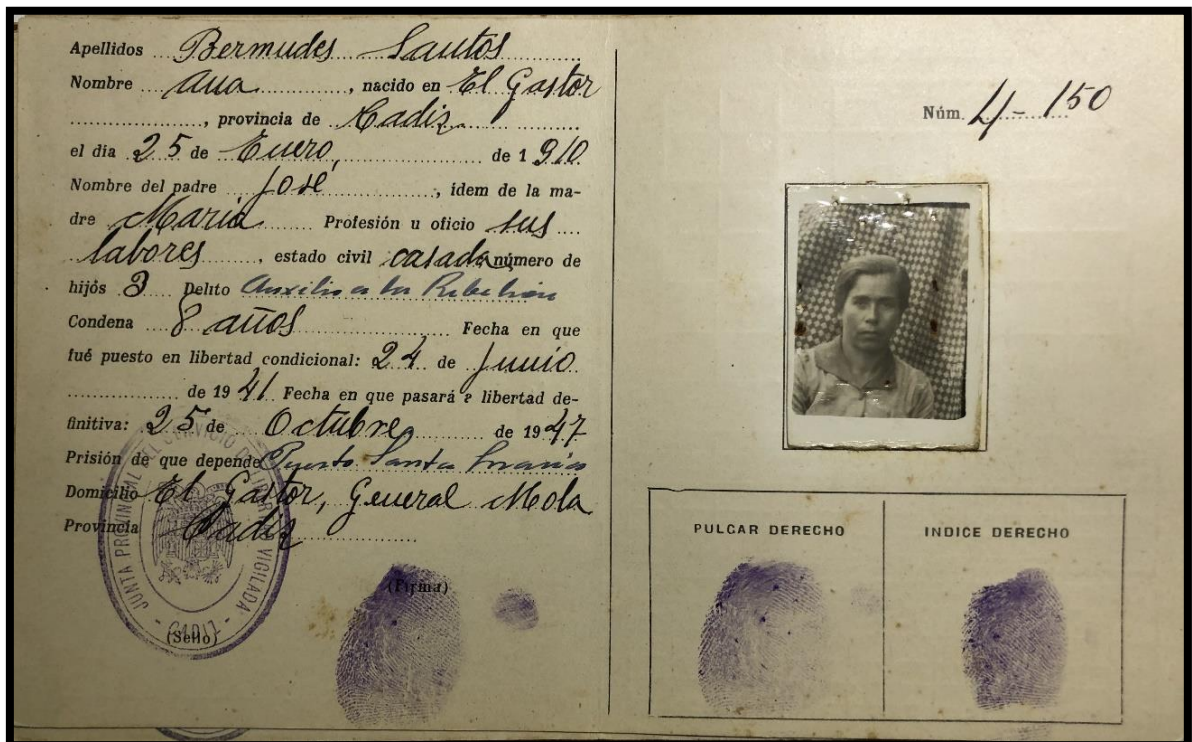 Apellidos Bermudes Santos
Nombre Ana, nacido en El Gastor
, provincia de Cadiz
el dia 25 de Enero, de 1910
Nombre del padre José, idem de la ma-
dre Maria Profesión u oficio sus
labores, estado civil casada, número de
hijos 3 Delito Auxilio a la Rebelion
Condena 8 años Fecha en que
fué puesto en libertad condicional: 24 de Junio
de 1941 Fecha en que pasará a libertad de-
finitiva: 25 de Octubre de 1947
Prisión de que depende Puerto Santa Maria
Domicilio El Gastor, General Mola
Provincia Cadiz
(Firma)
(Sello)
JUNTA PROVINCIAL DEL SERVICIO DE LIBERTAD VIGILADA - CADIZ -
Núm. 4-150
PULGAR DERECHO
INDICE DERECHO